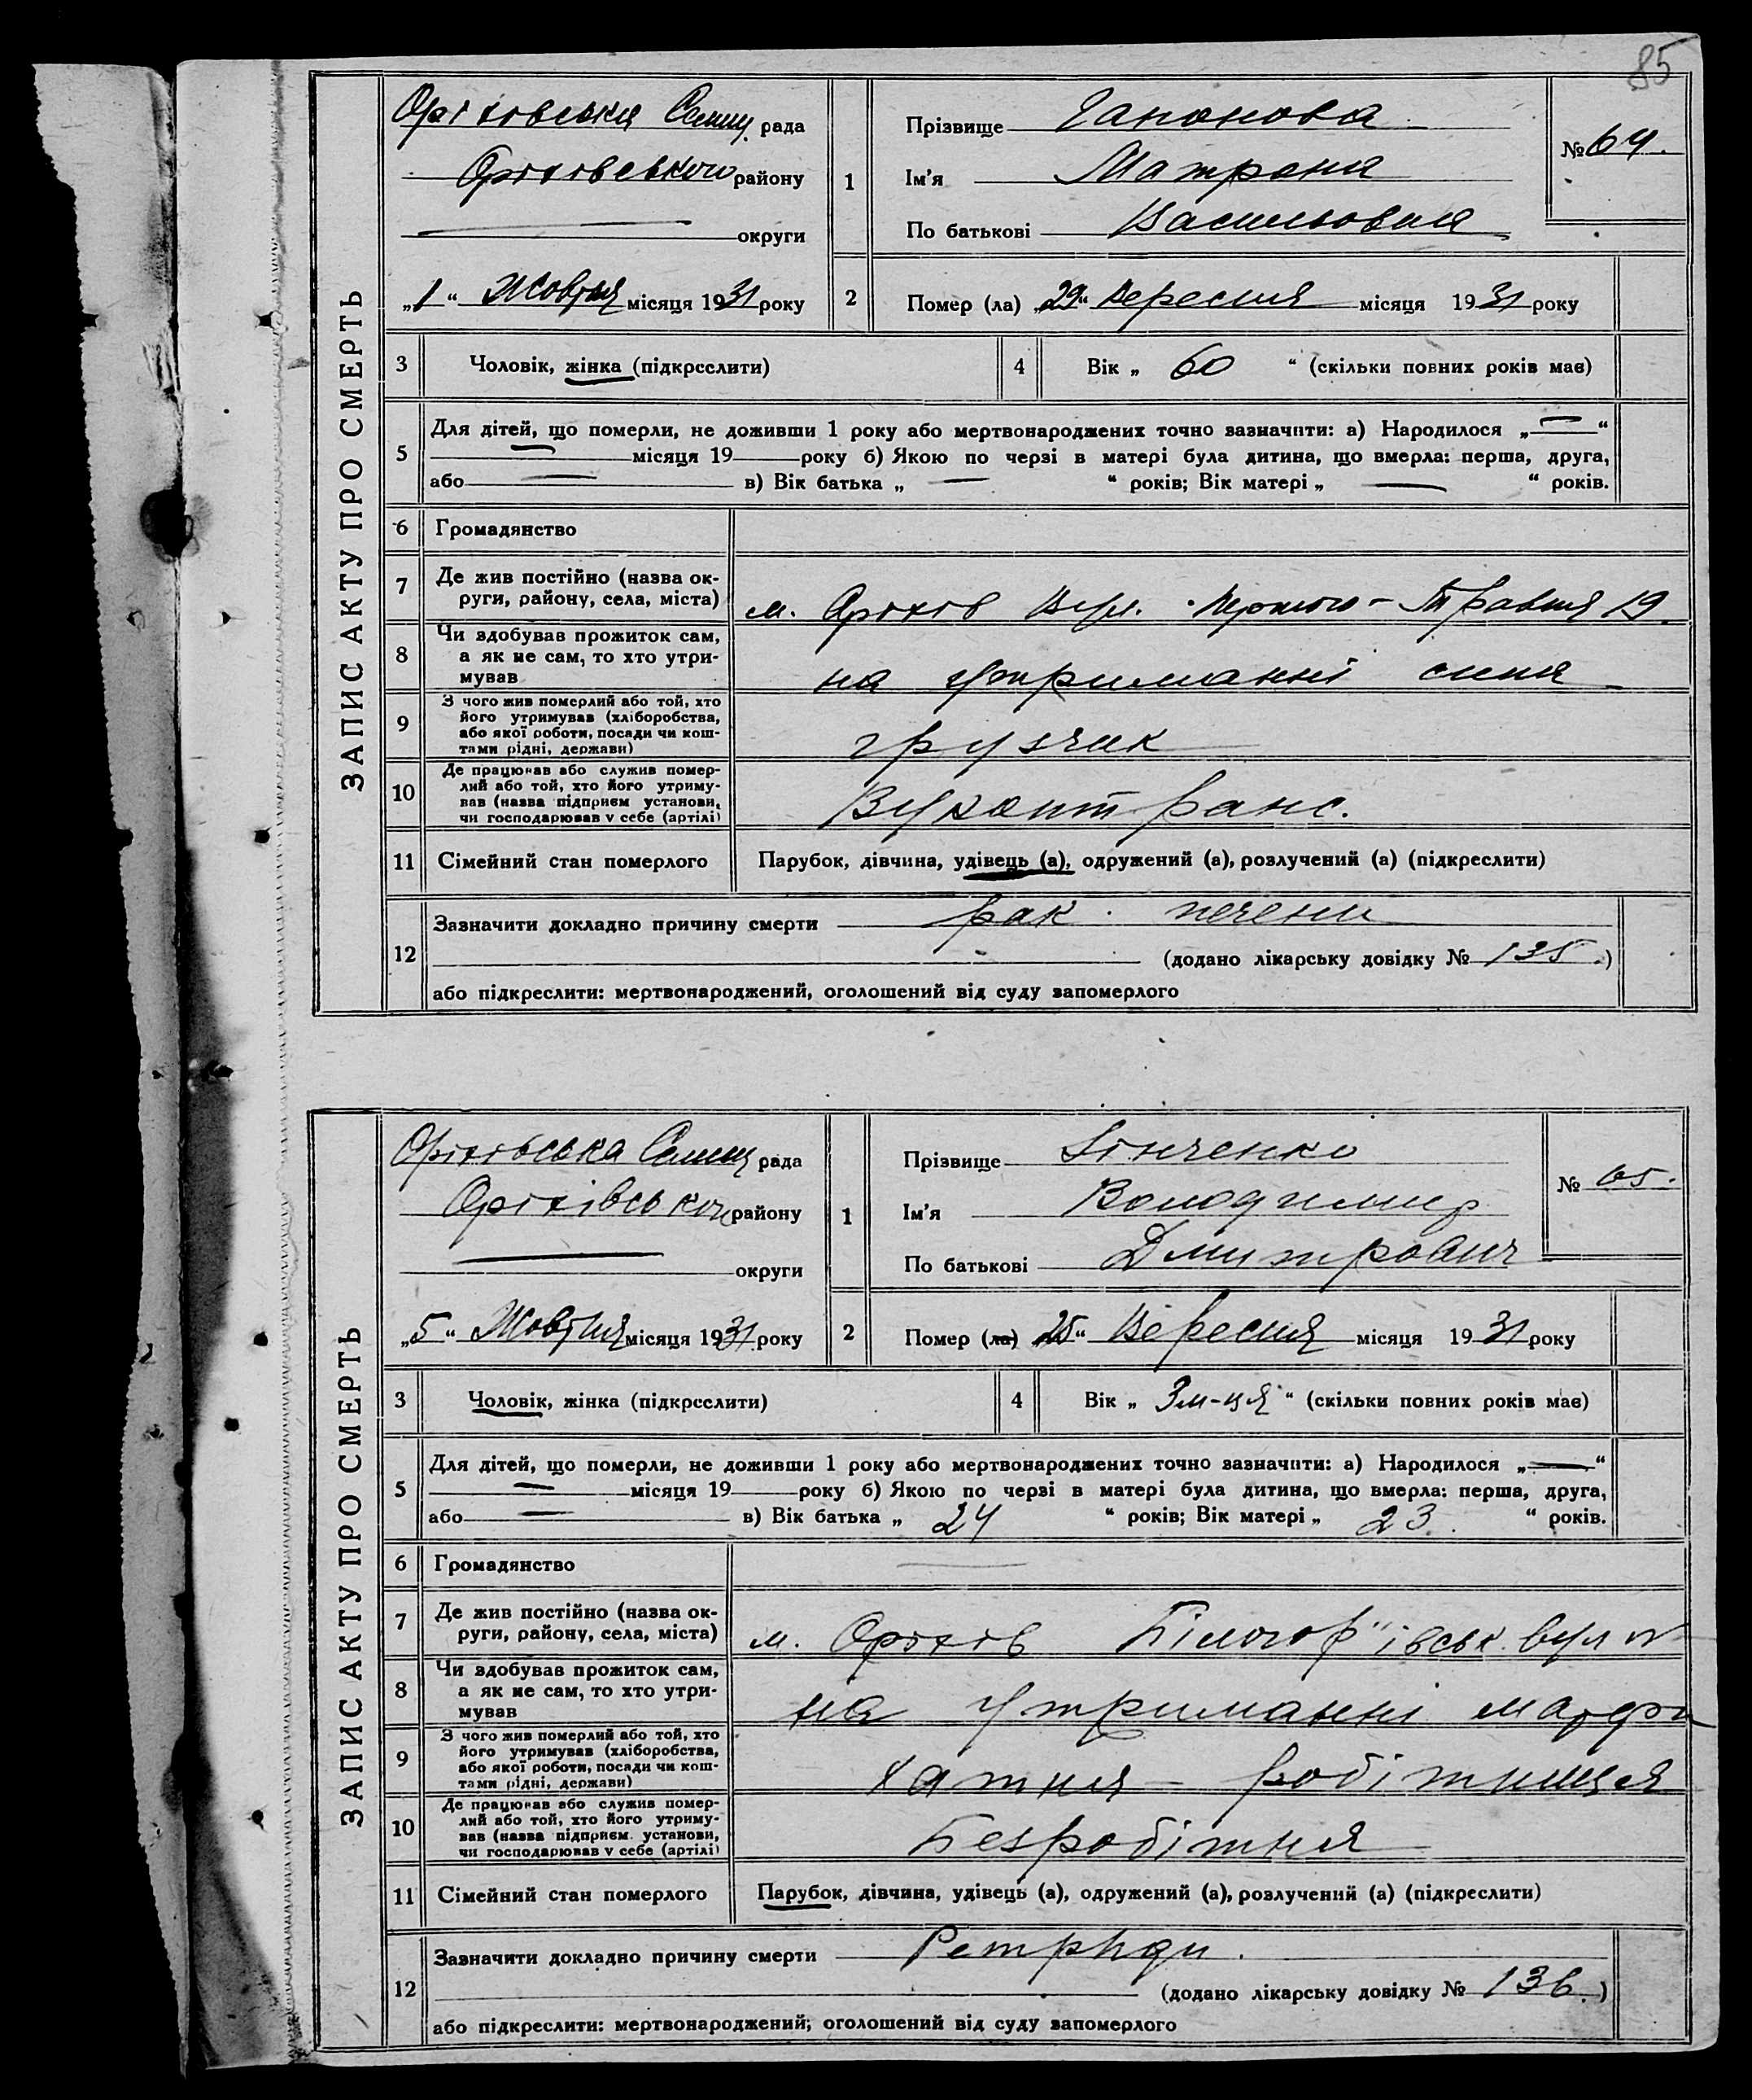 85
ЗАПИС АКТУ ПРО СМЕРТЬ
Оріхівська Селищ. рада
Оріхівського району
округи
„1“ Жовтня місяця 1931 року
1
Прізвище Гапонова
Ім'я Матрона
По батькові Васильовна
№ 64.
2 Помер (ла) „29“ вересня місяця 1931 року
3 Чоловік, жінка (підкреслити)
4 Вік „ 60 “ (скільки повних років має)
5 Для дітей, що померли, не доживши 1 року або мертвонароджених точно зазначити: а) Народилося „—“
— місяця 19 року б) Якою по черзі в матері була дитина, що вмерла: перша, друга,
або — в) Вік батька „ — “ років; Вік матері „ — “ років.
6 Громадянство
7 Де жив постійно (назва ок-
руги, району, села, міста)
м. Оріхів Вул. Першого-Травня 19.
8 Чи здобував прожиток сам,
а як не сам, то хто утри-
мував
на утриманні сина
9 З чого жив померлий або той, хто
його утримував (хліборобства,
або якої роботи, посади чи кош-
тами рідні, держави)
грузчик
10 Де працював або служив помер-
лий або той, хто його утриму-
вав (назва підприєм установи,
чи господарював у себе (артілі)
11 Сімейний стан померлого
Парубок, дівчина, удівець (а), одружений (а), розлучений (а) (підкреслити)
12 Зазначити докладно причину смерти рак печени
(додано лікарську довідку № 135.)
або підкреслити: мертвонароджений, оголошений від суду запомерлого
ЗАПИС АКТУ ПРО СМЕРТЬ
Оріхівська Селищ рада
Оріхівського району
округи
„5“ Жовтня місяця 1931 року
1
Прізвище Зінченко
Ім'я Володимир
По батькові Дмитрович
№ 65.
2 Помер (ла) 25“ Вересня місяця 1931 року
3 Чоловік, жінка (підкреслити)
4 Вік „ 3 м-ця “ (скільки повних років має)
5 Для дітей, що померли, не доживши 1 року або мертвонароджених точно зазначити: а) Народилося „—“
— місяця 19 року б) Якою по черзі в матері була дитина, що вмерла: перша, друга,
або — в) Вік батька „ 24 “ років; Вік матері „ 23 “ років.
6 Громадянство —
7 Де жив постійно (назва ок-
руги, району, села, міста)
м. Оріхів вул №
8 Чи здобував прожиток сам,
а як не сам, то хто утри-
мував
на утриманні
9 З чого жив померлий або той, хто
його утримував (хліборобства,
або якої роботи, посади чи кош-
тами рідні, держави)
хатня - робітниця
10 Де працював або служив помер-
лий або той, хто його утриму-
вав (назва підприєм. установи,
чи господарював у себе (артілі)
Безробітня
11 Сімейний стан померлого
Парубок, дівчина, удівець (а), одружений (а), розлучений (а) (підкреслити)
12 Зазначити докладно причину смерти
(додано лікарську довідку № 136.)
або підкреслити: мертвонароджений; оголошений від суду запомерлого